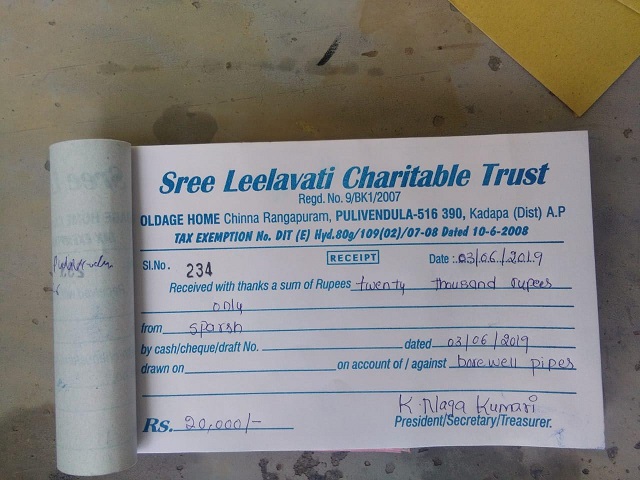 Sree Leelavati Charitable Trust
Regd. No. 9/BK1/2007
OLDAGE HOME Chinna Rangapuram, PULIVENDULA-516 390, Kadapa (Dist) A.P
TAX EXEMPTION No. DIT (E) Hyd.80g/109(02)/07-08 Dated 10-6-2008
Sl.No. 234 RECEIPT Date :.03/06/2019
Received with thanks a sum of Rupees twenty thousand rupees
only
from sparsh
by cash/cheque/draft No. dated 03/06/2019
drawn on on account of / against borewell pipes
K. Naga Kumari
Rs. 20,000/- President/Secretary/Treasurer.